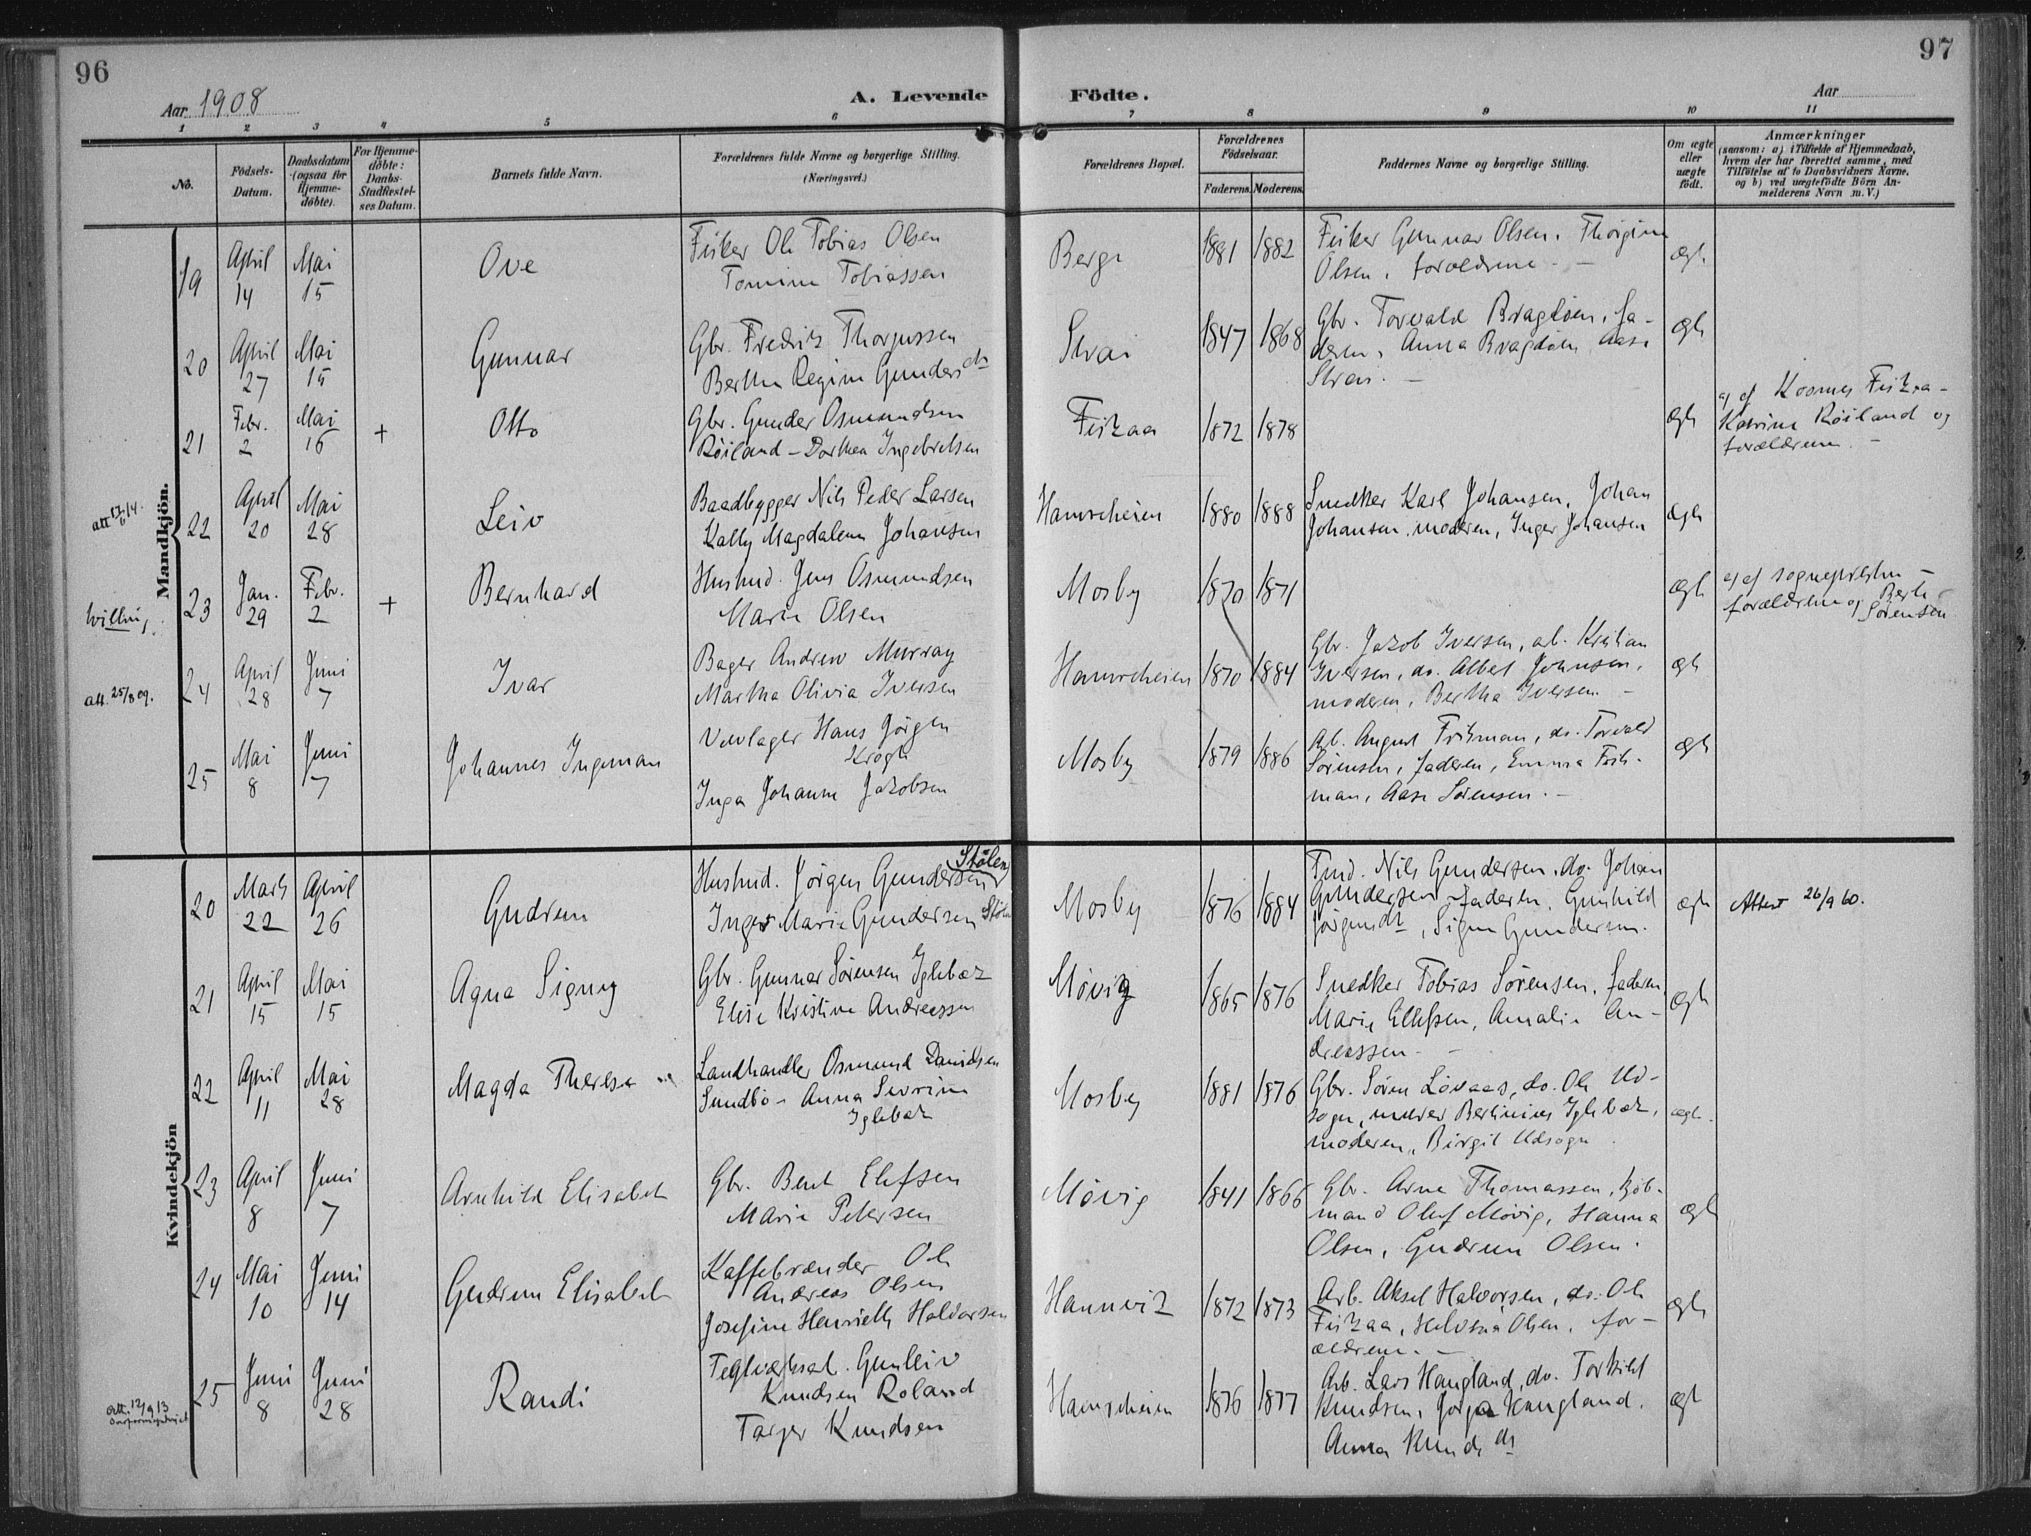 96
97
Aar 1908
A. Levende Födte.
Aar
1 2 3 4 5 6 7 8 9 10 11
No.
Födsels-Datum.
Daabsdatum (ogsaa for Hjemme-döbte).
For Hjemme-döbte: Daabs-Stadfæstel-ses Datum.
Barnets fulde Navn.
Forældrenes fulde Navne og borgerlige Stilling. (Næringsvei.)
Forældrenes Bopæl.
Forældrenes Födselsaar.
Faderens. Moderens.
Faddernes Navne og borgerlige Stilling.
Om ægte eller uægte födt.
Anmærkninger
(saasom: a) i Tilfælde af Hjemmedaab,
hvem der har forrettet samme, med
Tilföielse af to Daabsvidners Navne,
og b) ved uægtefödte Börn An-
melderens Navn m. V.)
Mandkjön.
19 April 14 Mai 15 Ove
Fisker Ole Tobias Olsen
Tomine Tobiassen
Berge 1881 1882
Fisker Gunnar Olsen, Thorgine
Olsen, forældrene. –
ægte
20 April 27 Mai 15 Gunnar
Gbr. Fredrik Thorgussen
Berthe Regine Gundersdtr
Strai 1847 1868
Gbr. Torvald Bragdøen, fa-
deren, Anna Bragdøen Aase
Strai. –
ægte
21 Febr. 2 Mai 16 + Otto
Gbr. Gunder Osmundsen
Røiland – Dorthea Ingebretsen
Fiskaa 1872 1878
ægte
af Fiskaa –
Katrine Røiland og
forældrene. –
att 17/6 14.
22 April 20 Mai 28 Leiv
Baadbygger Nils Peder Larsen
Kally Magdalene Johansen
Hamreheien 1880 1888
Snedker Karl Johansen, Johan
Johansen, moderen, Inger Johansen
ægte
23 Jan. 29 Febr. 2 + Bernhard
Husmd. Jens Osmundsen
Marie Olsen
Mosby 1870 1871
ægte
af sognepresten –
forældrene og Berte
Sørensen
att. 25/8 09.
24 April 28 Juni 7 Ivar
Bager Andrew Murray
Martha Olivia Iversen
Hamreheien 1870 1884
Gbr. Jakob Iversen, arb. Kristian
Iversen, do. Albert Johnsen,
moderen, Bertha Iversen. –
ægte
25 Mai 8 Juni 7 Johannes Ingeman
Værlager Hans Jørgen
Krogh
Inga Johanne Jakobsen
Mosby 1879 1886
Arb. August Frikman, do. Torvald
Sørensen, faderen, Emma Frik-
man, Aase Sørensen. –
ægte
Kvindekjön
20 Marts 22 April 26 Gudrun
Husmd. Jørgen Gundersen Stölen
Inger Marie Gundersen
Mosby 1876 1884
Nils Gundersen, do. Johan
Gundersen faderen, Gunhild
Jørgensdtr, Signe Gundersen.
ægte
Attest 26/9 60.
21 April 15 Mai 15 Agna Signy
Gbr. Gunnar Sørensen Iglebæk
Elise Kristine Andreassen
Møvig 1865 1876
Snedker Tobias Sørensen, faderen,
Marie Ellefsen, Amalie An-
dreassen. –
ægte
22 April 11 Mai 28 Magda Therese
Landhandler Osmund Davidsen
Sundbø – Anna Severine
Iglebæk
Mosby 1881 1876
Gbr. Søren Løvaas, do. Ole Ud-
sogn, murer Bertinius Iglebæk,
moderen, Birgit Udsogn.
ægte.
23 April 8 Juni 7 Arnhild Elisabet
Gbr. Bent Elefsen
Marie Petersen
Møvig 1841 1866
Gbr. Arne Thomassen, kjøb-
mand Oluf Møvig, Hanna
Olsen, Gudrun Olsen.
ægte
24 Mai 10 Juni 14 Gudrun Elisabet
Kaffebrænder Ole
Andreas Olsen
Josefine Henriette Halvorsen
Hannevik 1872 1873
Arb. Aksel Halvorsen, do. Ole
Fiskaa, Helvina Olsen, for-
ældrene. –
ægte
att. 12/9 13
25 Juni 8 Juni 28 Randi
Teglværksarb. Gunleiv
Knudsen Roland
Tarjer Knudsen
Hamreheien 1876 1877
Arb. Lars Haugland, do. Torkild
Knudsen, Haugland,
Anna Knudsdtr
ægte